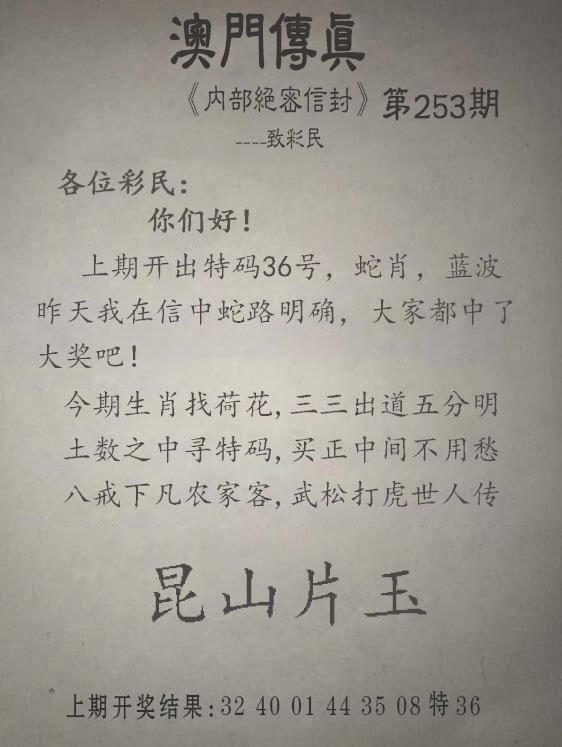 澳門傳眞
《内部絕密信封》第253期
----致彩民
各位彩民：
你们好！
上期开出特码36号，蛇肖，蓝波
昨天我在信中蛇路明确，大家都中了
大奖吧！
今期生肖找荷花,三三出道五分明
土数之中寻特码,买正中间不用愁
八戒下凡农家客,武松打虎世人传
昆山片玉
上期开奖结果:32 40 01 44 35 08 特36